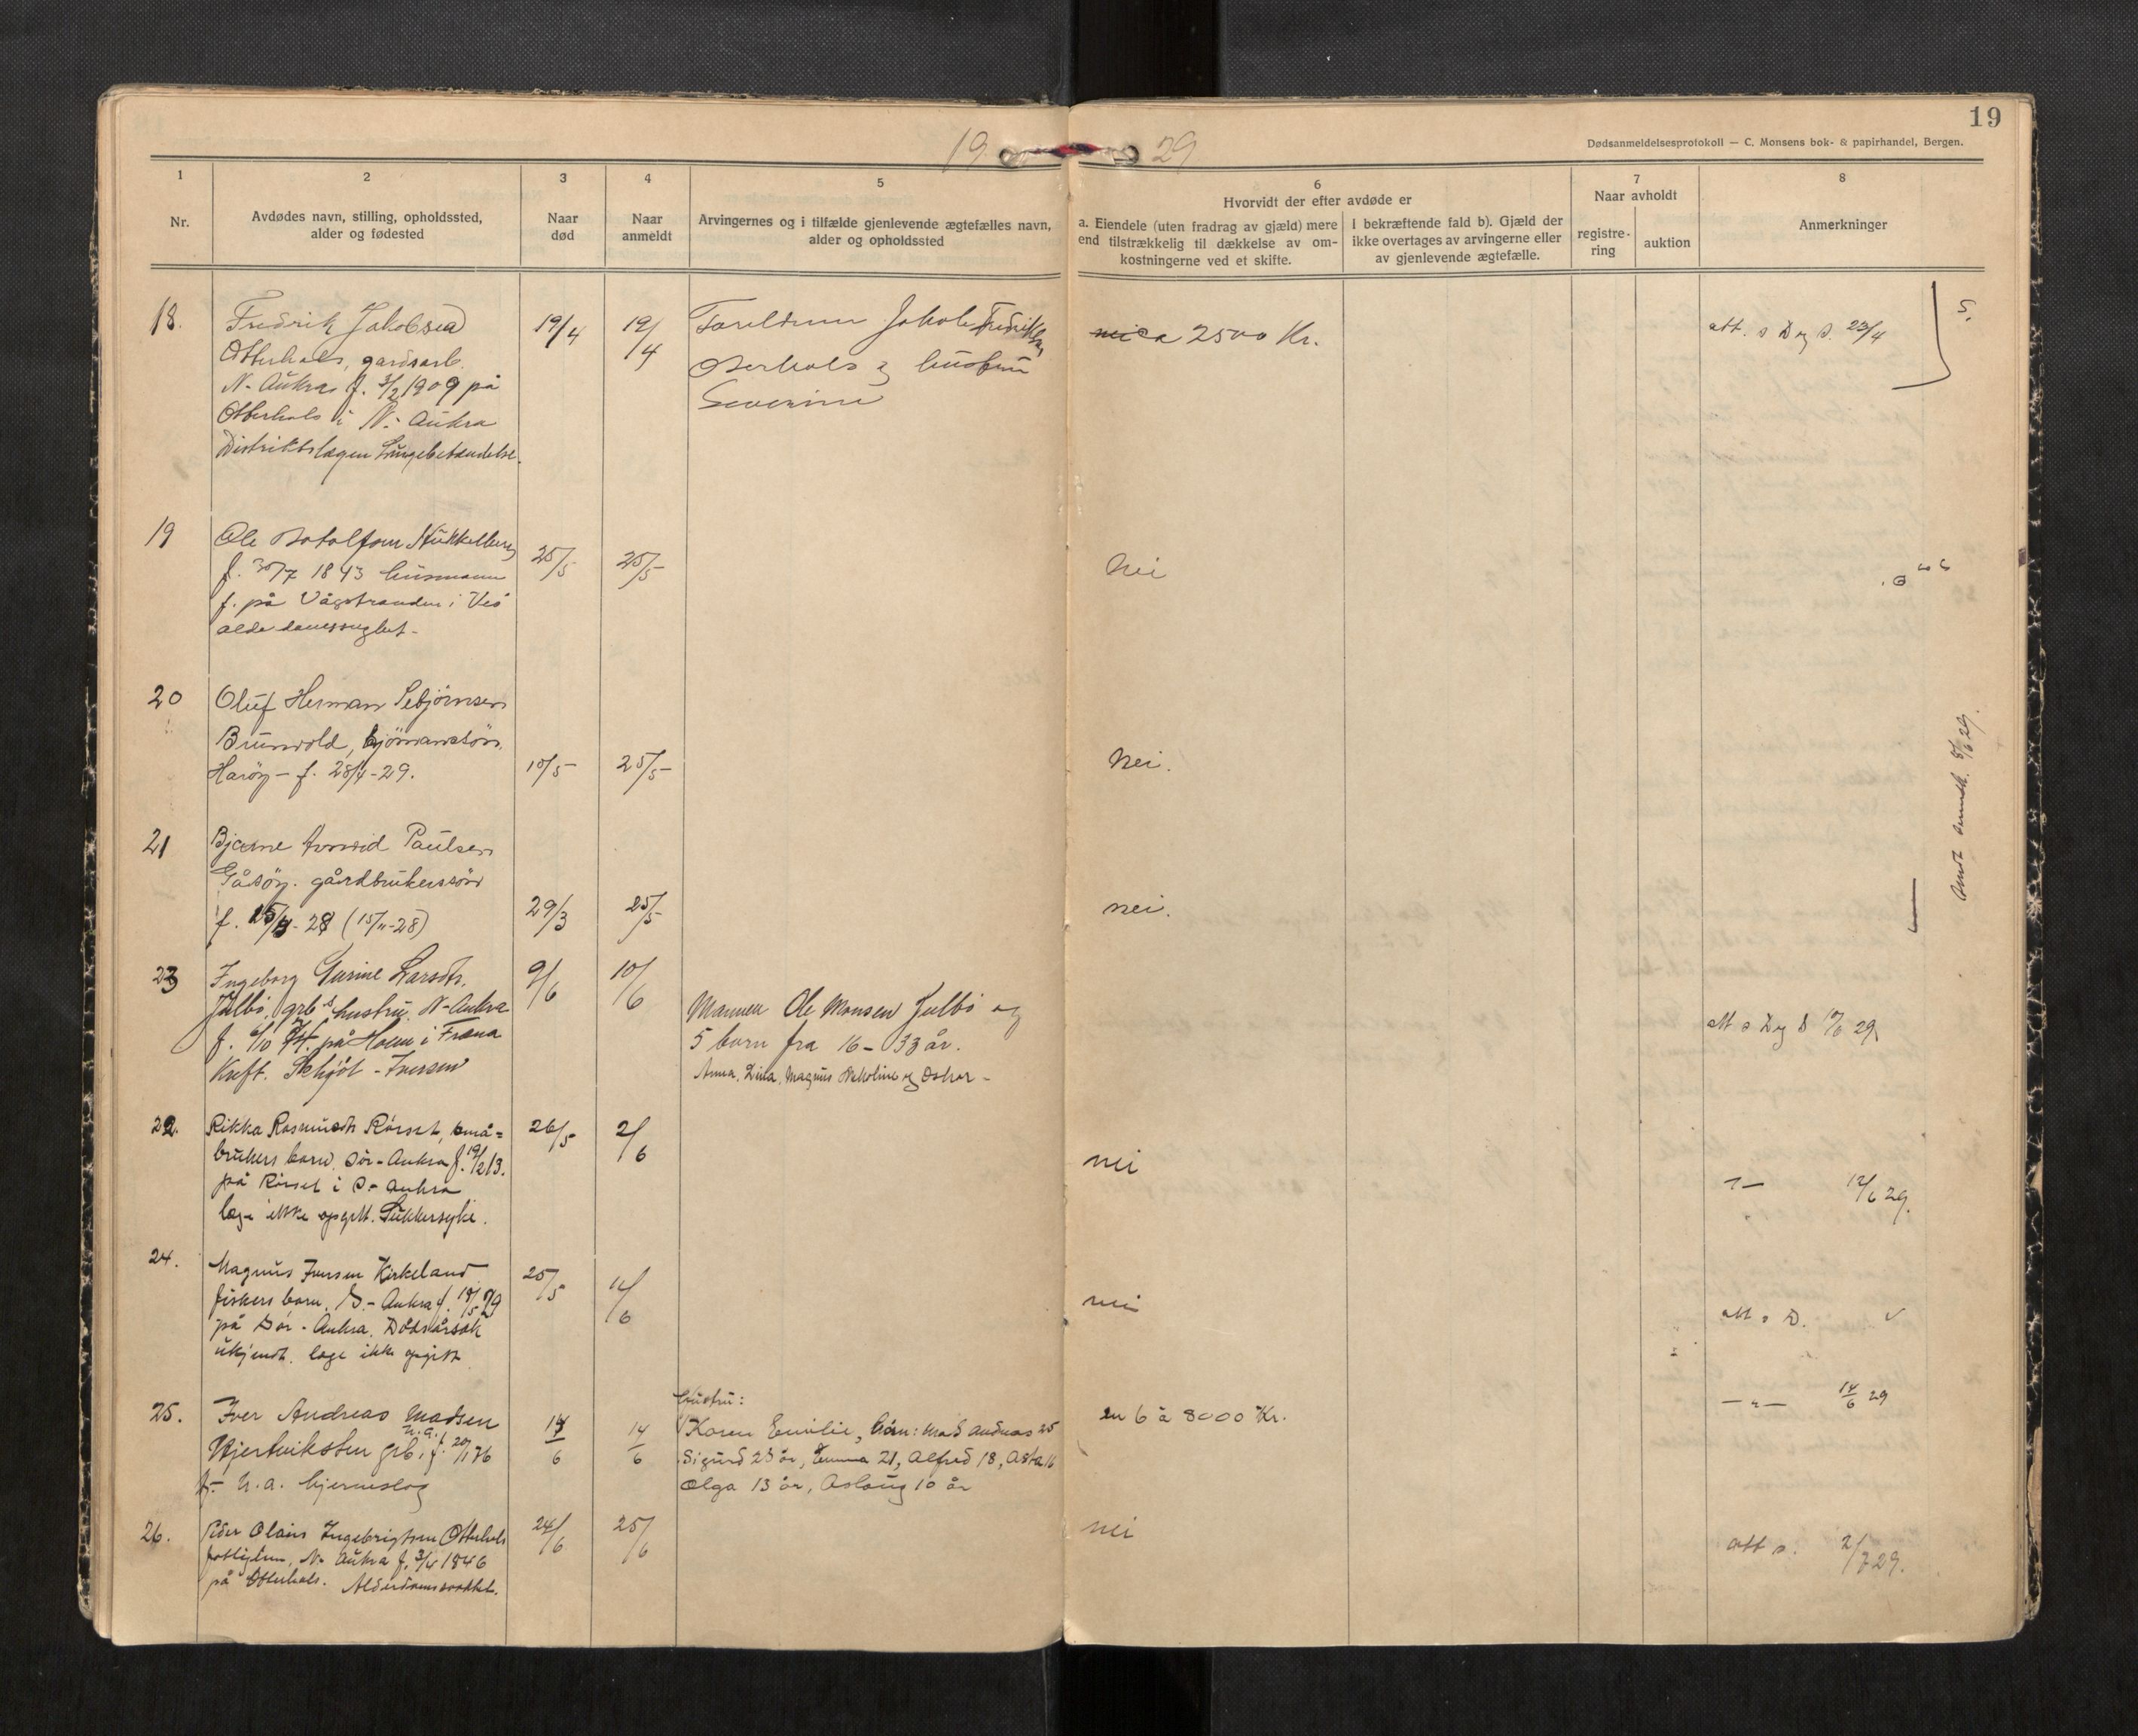 19
19 29
Dødsanmeldelsesprotokoll — C. Monsens bok- & papirhandel, Bergen.
1
Nr.
2
Avdødes navn, stilling, opholdssted,
alder og fødested
3
Naar
død
4
Naar
anmeldt
5
Arvingernes og i tilfælde gjenlevende ægtefælles navn,
alder og opholdssted
6
Hvorvidt der efter avdøde er
a. Eiendele (uten fradrag av gjæld) mere
end tilstrækkelig til dækkelse av om-
kostningerne ved et skifte.
I bekræftende fald b). Gjæld der
ikke overtages av arvingerne eller
av gjenlevende ægtefælle.
7
Naar avholdt
registre-
ring
auktion
8
Anmerkninger
18.
Fredrik Jakobsen
Otterhals, gardsarb.
N. Aukra f. 3/2 1909 på
Otterhals i N. Aukra
Distriktslægen Lungebetændelse.
19/4
19/4
Foreldrene Jakob Fredriksen
Oterhals og hustru
Severine
ca 2500 Kr.
att. s D og S. 23/4
19
Ole
f. 30/7 1843 husmann
f. på Vågstranden i Vei
25/5
25/5
Nei
20
Oluf Herman
Harøy - f. 28/4-29.
10/5
25/5
Nei.
21
Bjarne Arnvid Paulsen
Gåsøy. gårdbrukerssøn
(15/11-28)
29/3
25/5
nei.
Anmeldt 5/6 29.
23
Ingeborg Gurine Larsdtr.
Julbø, grb's hustru. N-Aukra
på Holm i Fræna
Kreft.
9/6
10/6
Mannen Ole Monsen Julbø og
5 barn fra 16 - 33 år.
Anna, Magnus og Oskar -
att s D og S 29
22.
Rikka Rasmusdtr Rørset, små=
brukers barn. Sør-Aukra f. 19/2 13.
på Rørset i S. Aukra
læge ikke opgitt. Sukkersyke.
26/5
2/6
nei
12/6 29.
24.
Magnus Iversen Kirkeland
fiskers barn. S.-Aukra f. 18/5 29
på Sør-Aukra. Dødsårsak
ukjendt. læge ikke opgitt
25/5
11/6
nei
att s D.
25.
Iver Andreas Madsen
Hjertvikslien grb. N.A. f. 20/1 76
f. N.a. hjerneslag
14/6
14/6
hustru:
Karen Emilie, børn: Mads Andreas 25
Sigurd 23 år, Emma 21, Alfred 18, Asta 16
Olga 13 år, Aslaug 10 år
6 à 8000 Kr.
— " — 14/6 29
26.
Peder Olaus Ingebrigtsen Otterhals
fattiglem, N. Aukra f. 3/4 1846
på Otterhals. Alderdomssvakhet.
24/6
25/6
nei
att s. 2/7 29.